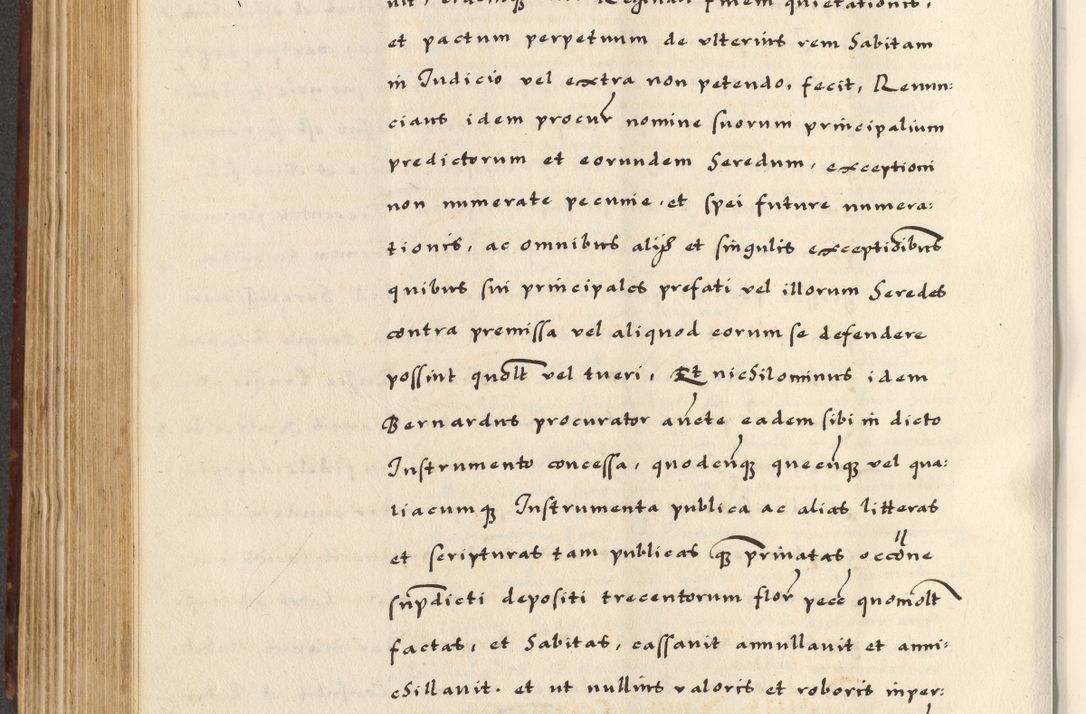 nit, eidemqȝ Reginali finem quietationis,
et pactum perpetuum de vlterius rem habitam
in Iudicio vel extra non petendo, fecit, Renun:
cians idem procur nomine suorum principalium
predictorum et eorundem heredum, exceptioni
non numerate pecunie, et spei future numera:
tionis, ac omnibus alijs et singulis exceptiōibus
quibus sui principales prefati vel illorum heredes
contra premissa vel aliquod eorum se defendere
possint quolt vel tueri, Et nichilominus idem
Bernardus procurator aucte eadem sibi in dicto
Instrumento concessa, quodcunqȝ quecunqȝ vel qua:
liacumqȝ Instrumenta publica ac alias litteras
et scripturas tam publicas qȝ priuatas occōne
supdicti depositi trecentorum flor pecc quomolt
factas, et habitas, cassauit annullauit et anni:
chillauit. et ut nullius valoris et roboris inper: